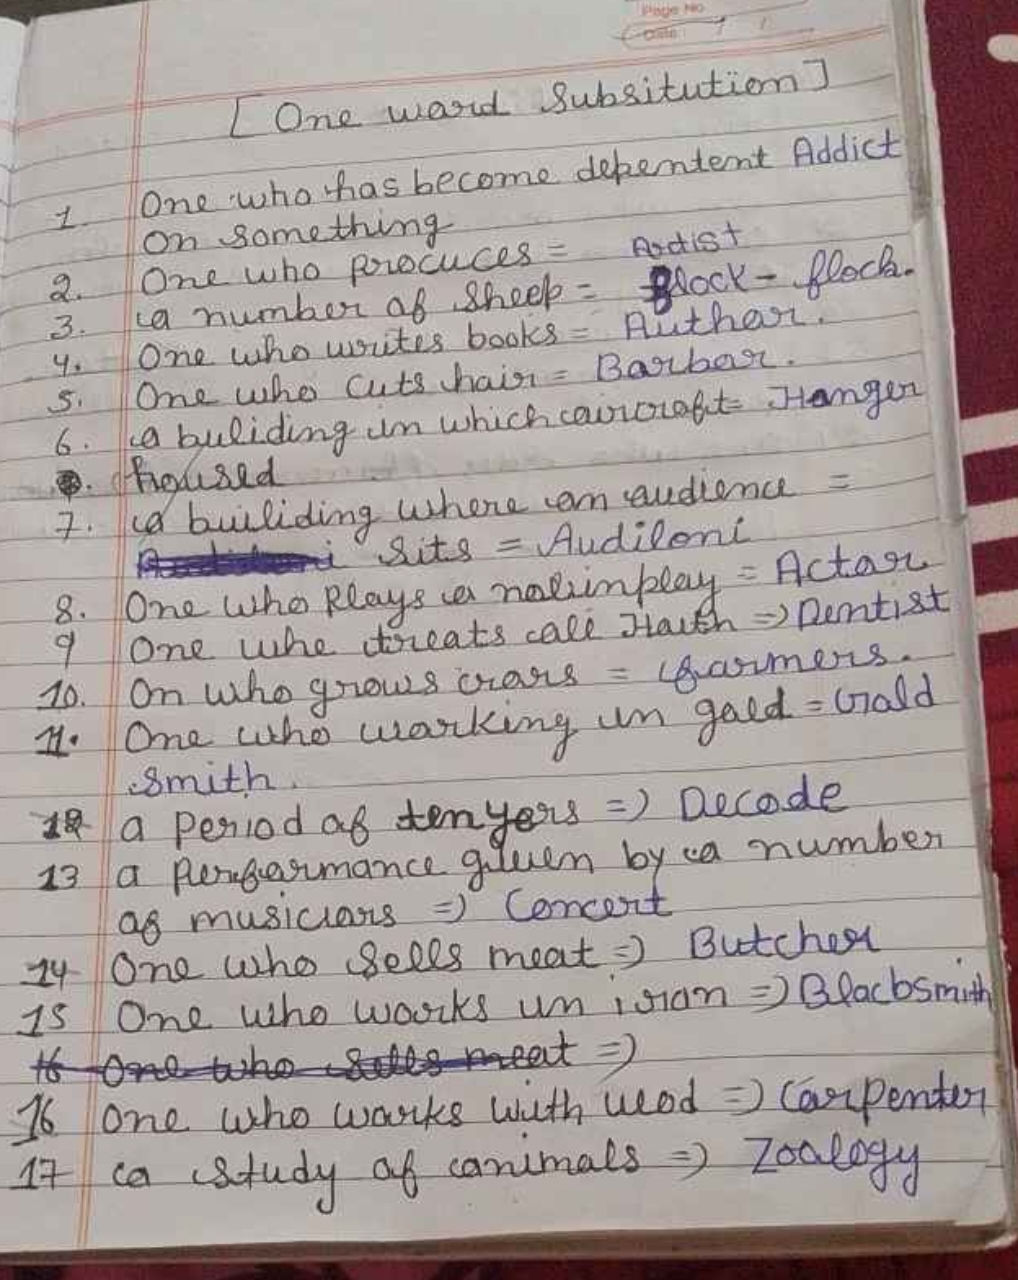 Page No
Date
[One ward Subsitution]
1. One who has become dependent Addict
on something
2. One who procuces = Artist
3. a number of Sheep = Flock - flock.
4. One who writes books = Author.
5. One who cuts hair = Barbar.
6. a buliding in which aircraft = Hanger
housed
7. a builiding where an audience =
sits = Audiloni
8. One who Plays a in play = Actor
9 One who treats all = Dentist
10. On who grows = farmers.
11. One who working in gold = Gold
Smith.
12 a Period of ten yers => Decode
13 a Performance given by a number
of musicians => Concert
14 One who Sells meat => Butcher
15 One who works in iron => Blacbsmith
16 One who Sells meat =>
16 One who works with wod => Carpenter
17 a study of animals => Zoology